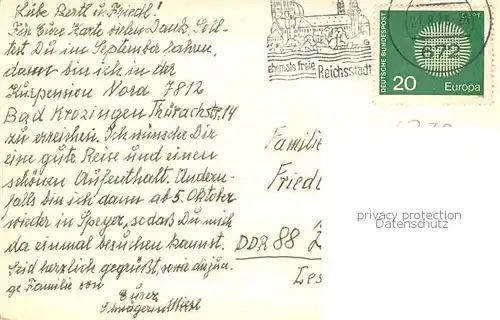 Liebe Bertl u. Friedl!
Für Eure Karte vielen Dank. Soll-
test Du im September fahren,
dann bin ich in der
Kurpension Nora 7812
Bad Krozingen Thürachstr. 14
zu erreichen. Ich wünsche Dir
eine gute Reise und einen
schönen Aufenthalt. Andern-
falls bin ich dann ab 5. Oktober
wieder in Speyer, so daß Du mich
da einmal besuchen kannst.
Seid herzlich gegrüßt, sowie die jun-
ge Familie von
Eurer
Schwägerin
ehemals freie
Reichsstadt
672
DEUTSCHE BUNDESPOST
20 Europa
Familie
Fried
DDR 88 Z
Les
privacy protection
Datenschutz